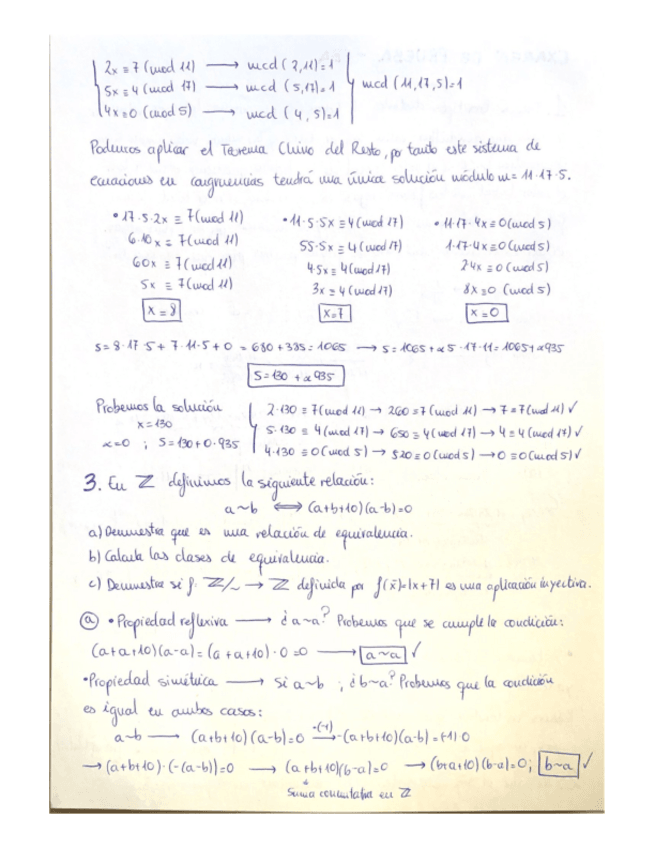 2x ≡ 7 (mod 11) → mcd (2,11)=1
5x ≡ 4 (mod 17) → mcd (5,17)=1 mcd (11,17,5)=1
4x ≡ 0 (mod 5) → mcd (4,5)=1
Podemos aplicar el Teorema Chino del Resto, por tanto este sistema de
ecuaciones en congruencias tendrá una única solución módulo m= 11·17·5.
• 17·5·2x ≡ 7(mod 11) • 11·5·5x ≡ 4(mod 17) • 11·17·4x ≡ 0(mod 5)
6·10x ≡ 7(mod 11) 55·5x ≡ 4(mod 17) 1·17·4x ≡ 0(mod 5)
60x ≡ 7(mod 11) 4·5x ≡ 4(mod 17) 2·4x ≡ 0(mod 5)
5x ≡ 7(mod 11) 3x ≡ 4(mod 17) 8x ≡ 0 (mod 5)
x = 8 x=7 x=0
S= 8·17·5 + 7·11·5 + 0 = 680 + 385 = 1065 → S= 1065 + α5·17·11 = 1065 + α935
S= 130 + α935
Probemos la solución 2·130 ≡ 7(mod 11) → 260 ≡ 7(mod 11) → 7 ≡ 7(mod 11) ✓
x=130 5·130 ≡ 4(mod 17) → 650 ≡ 4(mod 17) → 4 ≡ 4(mod 17) ✓
α=0 ; S=130+0·935 4·130 ≡ 0(mod 5) → 520 ≡ 0(mod 5) → 0 ≡ 0(mod 5) ✓
3. En ℤ definimos la siguiente relación:
a~b ⟺ (a+b+10)(a-b)=0
a) Demuestra que es una relación de equivalencia.
b) Calcula las clases de equivalencia.
c) Demuestra si f: ℤ/~ → ℤ definida por f(x̄)=|x+7| es una aplicación inyectiva.
a) • Propiedad reflexiva → ¿a~a? Probemos que se cumple la condición:
(a+a+10)(a-a)=(a+a+10)·0=0 → a~a ✓
• Propiedad simétrica → si a~b ; ¿b~a? Probemos que la condición
es igual en ambos casos:
a~b — (a+b+10)(a-b)=0 -(-1)→ -(a+b+10)(a-b)=(-1)0
→ (a+b+10)·(-(a-b))=0 → (a+b+10)(b-a)=0 → (b+a+10)(b-a)=0; b~a ✓
Suma conmutativa en ℤ